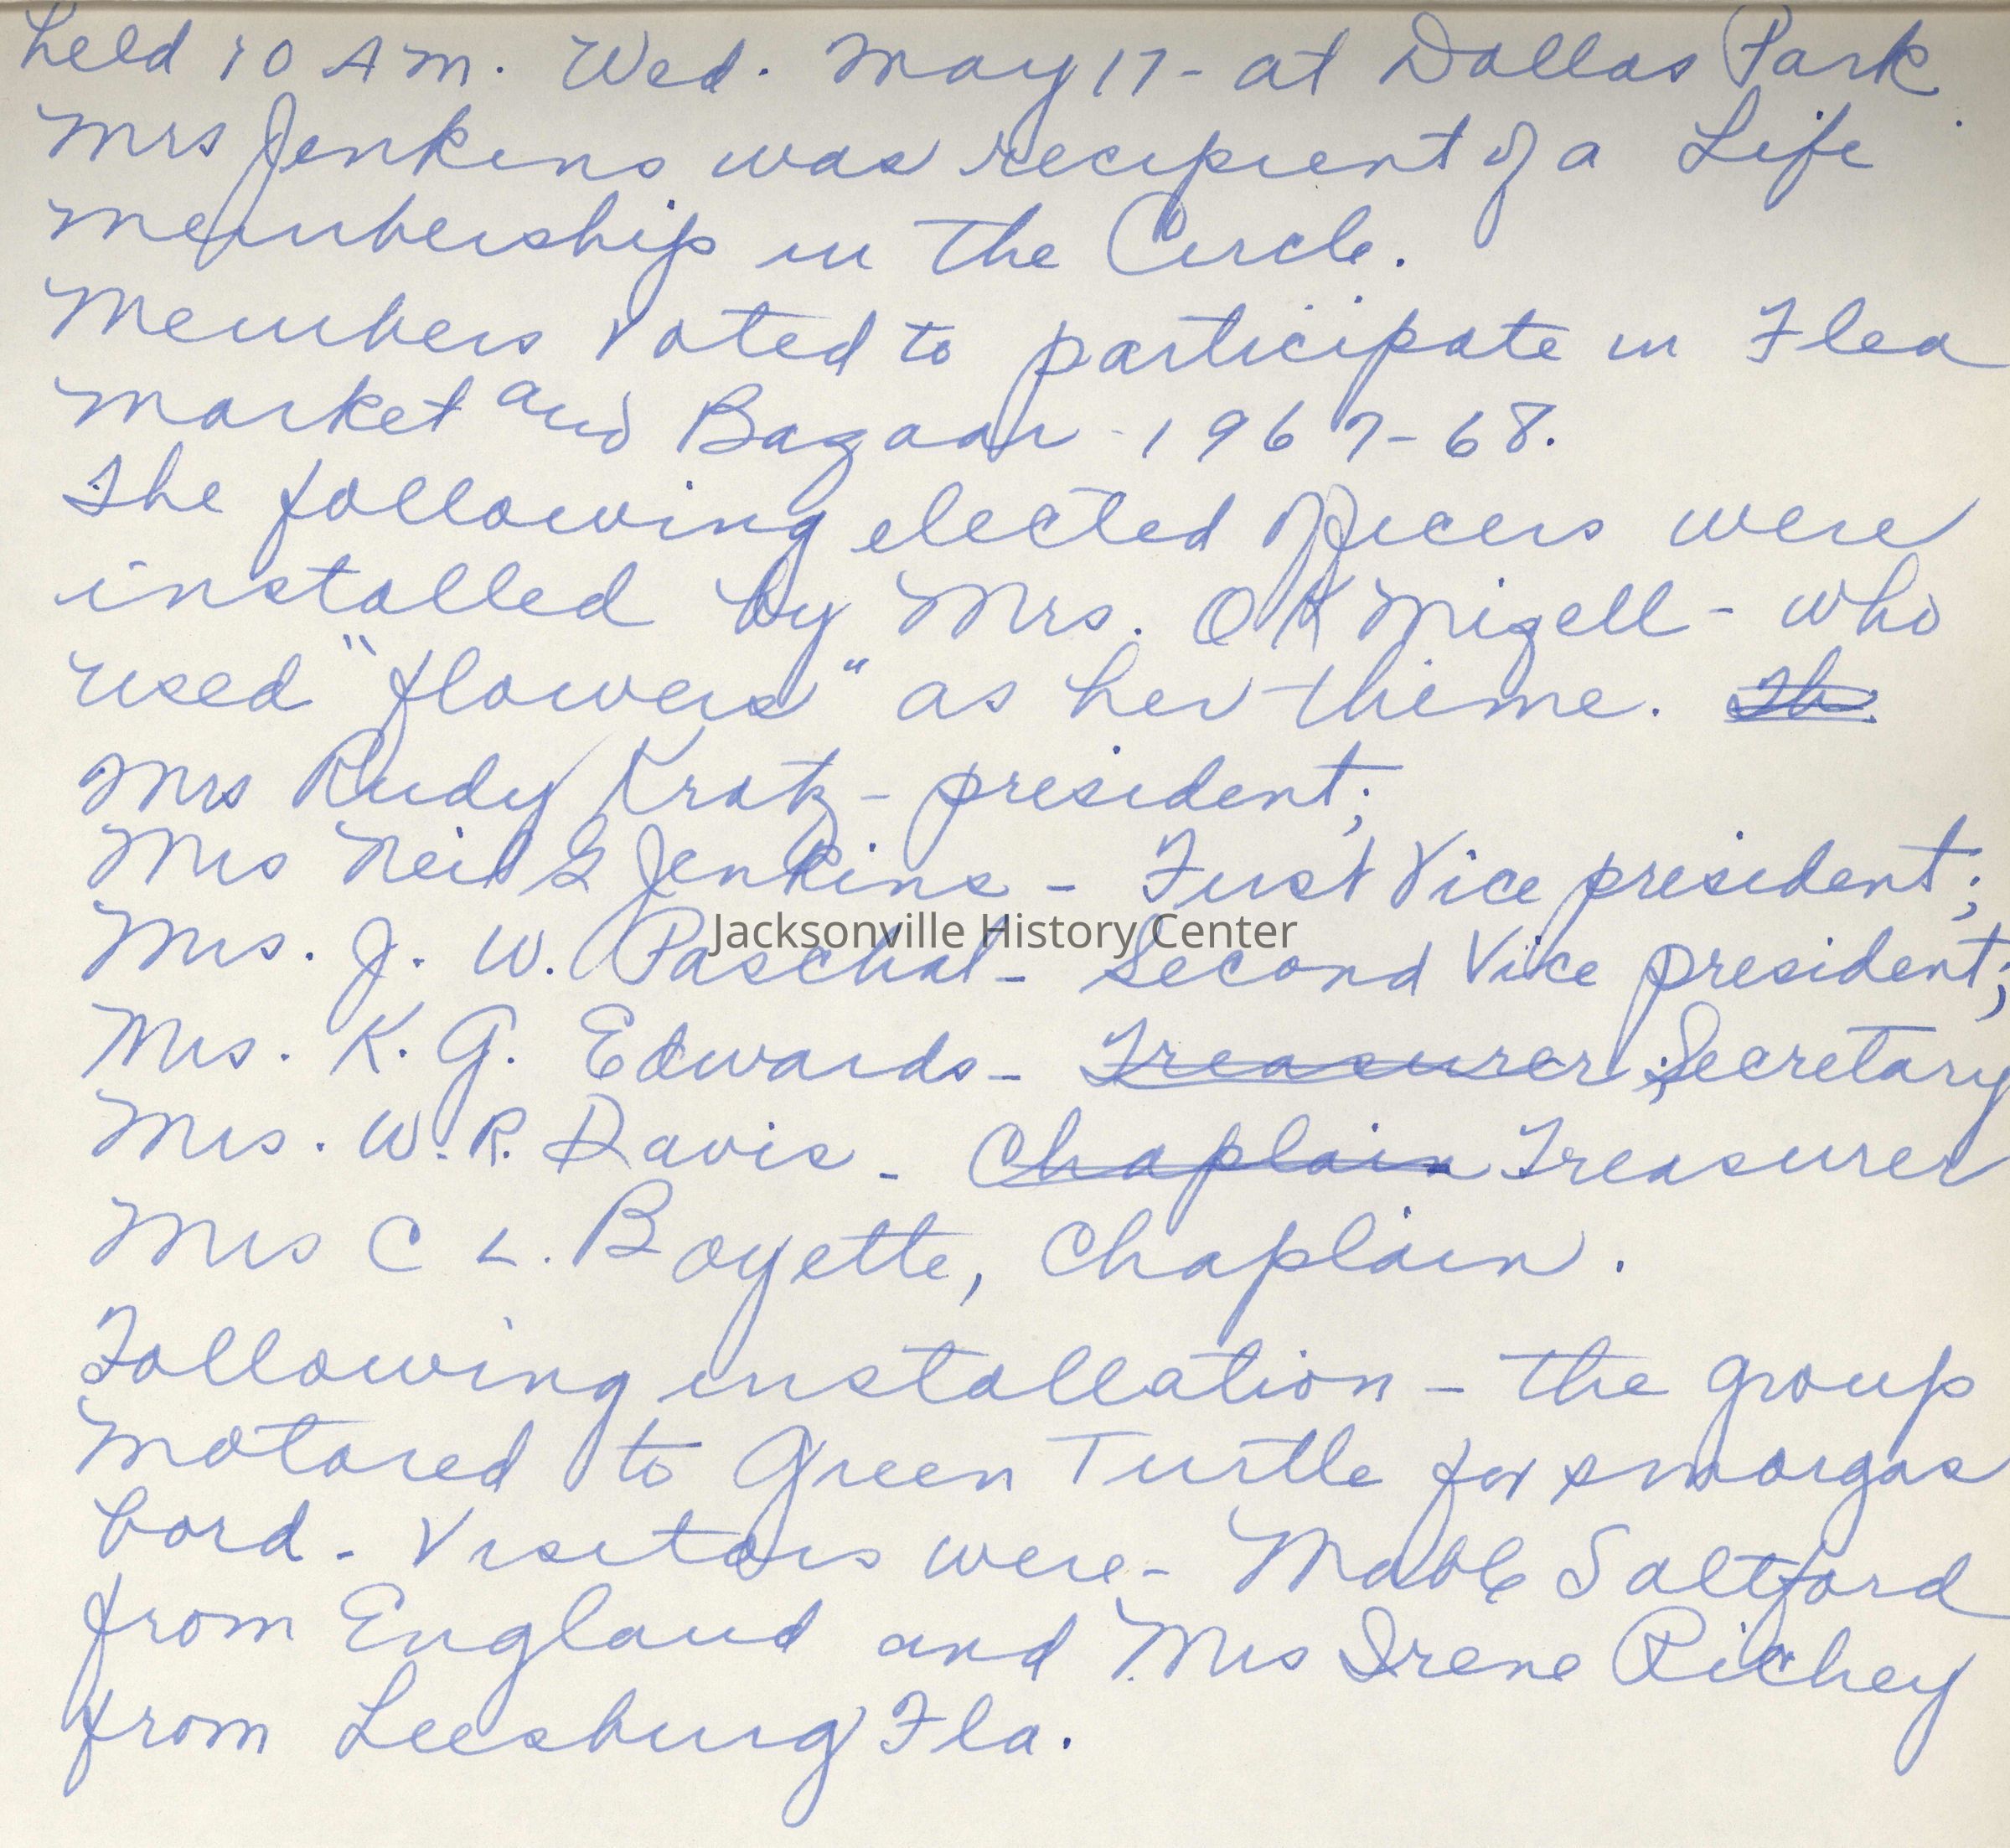 held 10 A m. Wed. May 17 - at Dallas Park.
Mrs Jenkins was recipient of a Life
membership in the Circle.
Members voted to participate in Flea
Market and Bazaar - 1967-68.
The following elected officers were
installed by Mrs. O K Mizell - who
used "flowers" as her theme. Th
Mrs Rudy Kratz - president;
Mrs Neil G Jenkins - First Vice president;
Mrs. J. W. Paschal - Second Vice president;
Jacksonville History Center
Mrs. K. G. Edwards - Treasurer; Secretary
Mrs. W. R. Davis - Chaplain Treasurer
Mrs C L. Boyette, Chaplain.
Following installation - the group
motored to Green Turtle for smorgas
bord - Visitors were - Mable Saltford
from England and Mrs Irene Richey
from Leesburg Fla.